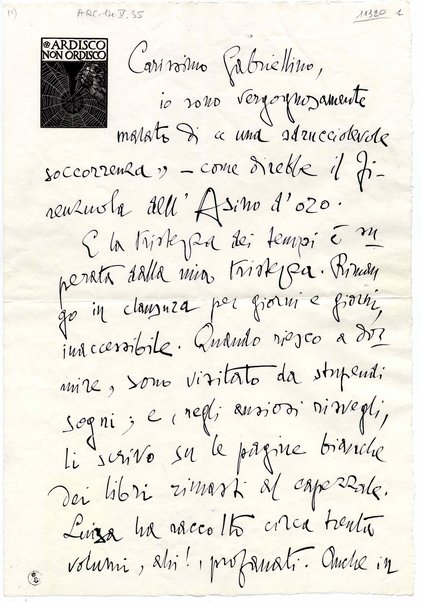 (1) AAC.14.V.35 11320 1
ARDISCO
NON ORDISCO
Carissimo Gabriellino,
io sono vergognosamente
malato di « una sdrucciolevole
soccorrenza » – come direbbe il Fi-
renzuola dell' Asino d'oro.
E la tristezza dei tempi è su-
perata dalla mia tristezza. Riman-
go in clausura per giorni e giorni,
inaccessibile. Quando riesco a dor-
mire, sono visitato da stupendi
sogni; e, negli ansiosi risvegli,
li scrivo su le pagine bianche
dei libri rimasti al capezzale.
Luisa ha raccolto circa trenta
volumi, ahi!, profanati. Anche in